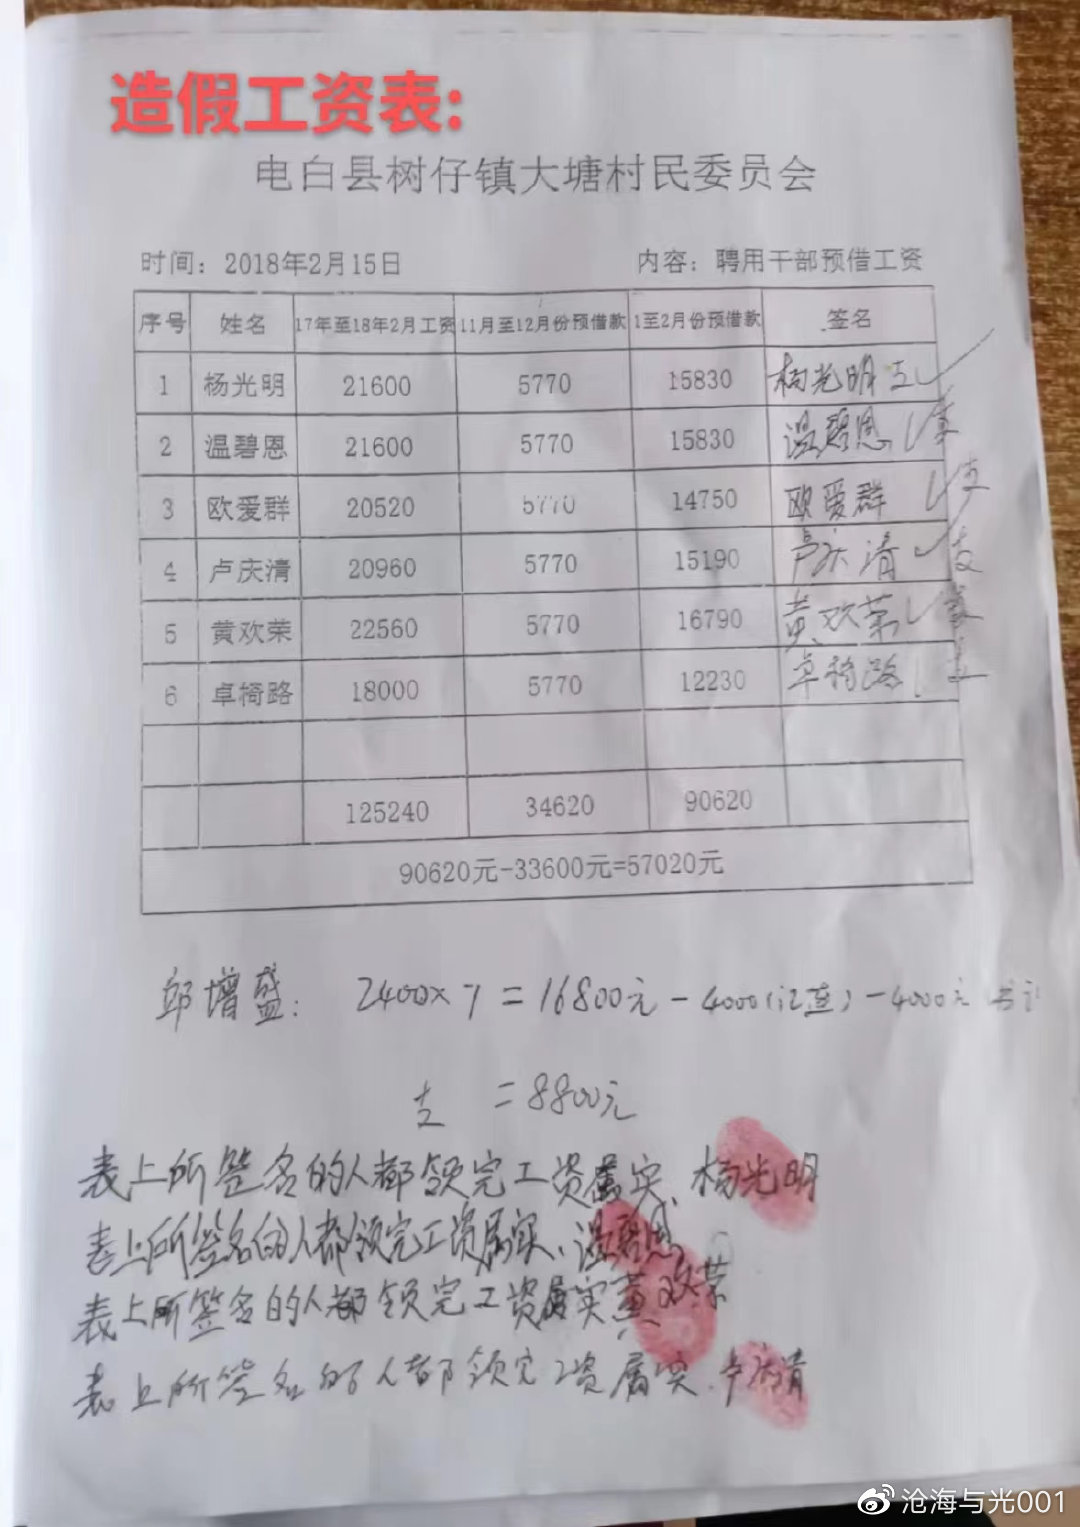 造假工资表:
电白县树仔镇大塘村民委员会
时间：2018年2月15日 内容：聘用干部预借工资
序号 姓名 17年至18年2月工资 11月至12月份预借款 1至2月份预借款 签名
1 杨光明 21600 5770 15830 杨光明 支
2 温碧恩 21600 5770 15830 温碧恩
3 欧爱群 20520 5770 14750 欧爱群 支
4 卢庆清 20960 5770 15190 卢庆清 支
5 黄欢荣 22560 5770 16790 黄欢荣
6 卓椅路 18000 5770 12230 卓椅路
125240 34620 90620
90620元-33600元=57020元
邱增盛: 2400×7=16800元-4000 -4000元
支 =8800元
表上所签名的人都领完工资属实、杨光明
表上所签名的人都领完工资属实、温碧恩
表上所签名的人都领完工资属实黄欢荣
表上所签名的人都领完工资属实.卢庆清
沧海与光001